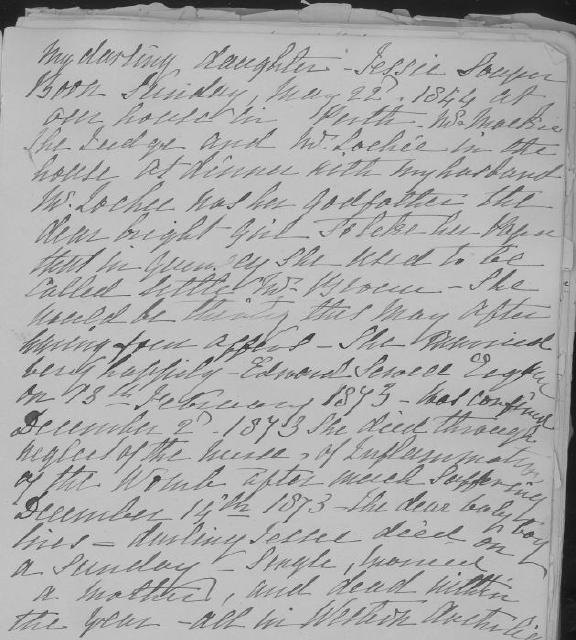 My darling daughter - Jessie Sarah
Born Sunday, May 22d. 1844 at
our house in Perth - Mr. Mackie
the Judge and Mr. Lochee in the
house at dinner with my husband
Mr. Lochee was her Godfather the
dear bright girl so like her
that in she used to be
called little Mr. - She
would be thirty this May after
- She married
very happily - Edward Sewell
on 13th February 1873 - was confined
December 2d - 1873 She died through
neglect of the nurse, of Inflammation
of the Womb after much Suffering
December 14th 1873 - The dear baby boy
lives - darling Jessie died on
a Sunday - Single, married
a mother, and dead within
the year - all in Western